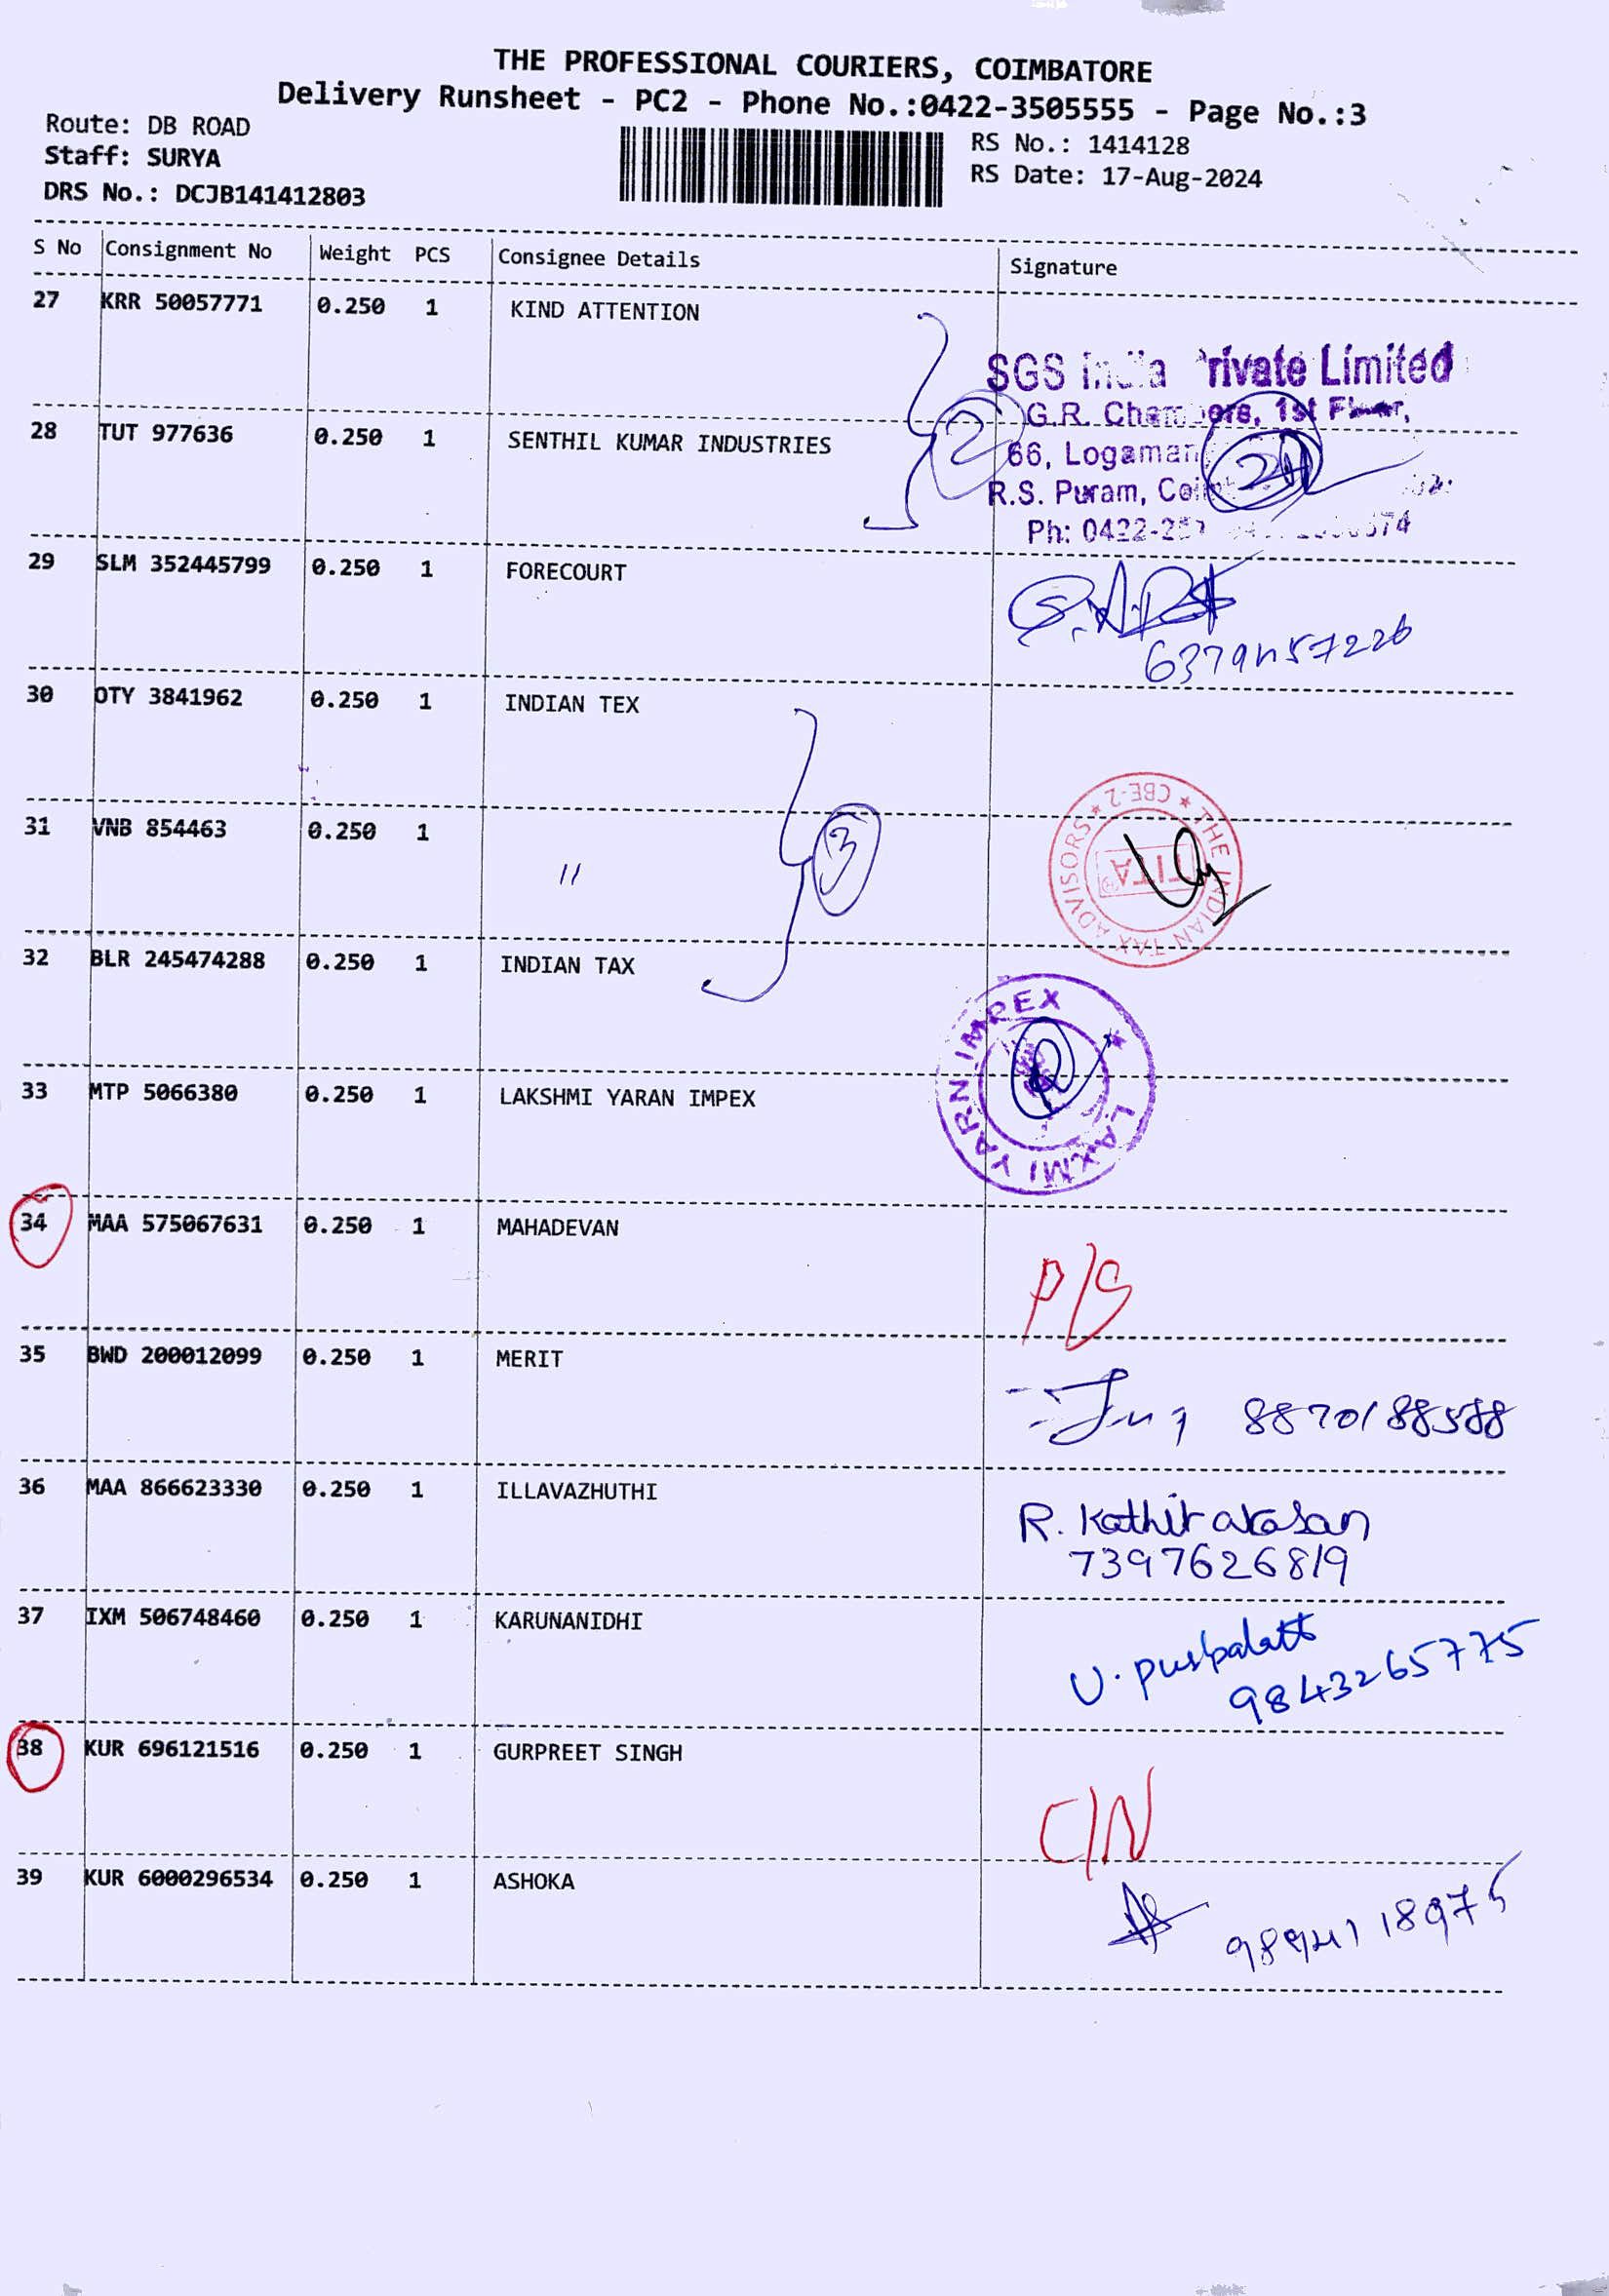 THE PROFESSIONAL COURIERS, COIMBATORE
Delivery Runsheet - PC2 - Phone No.:0422-3505555 - Page No.:3
Route: DB ROAD
Staff: SURYA
DRS No.: DCJB141412803
RS No.: 1414128
RS Date: 17-Aug-2024
S No Consignment No Weight PCS Consignee Details Signature
27 KRR 50057771 0.250 1 KIND ATTENTION
SGS India Private Limited
G.R. Chambers, 1st Floor,
28 TUT 977636 0.250 1 SENTHIL KUMAR INDUSTRIES 2
66, Logaman
R.S. Puram,
Ph: 0422-
29 SLM 352445799 0.250 1 FORECOURT
30 OTY 3841962 0.250 1 INDIAN TEX
31 VNB 854463 0.250 1 " 3
THE INDIAN TAX ADVISORS ★ CBE-2 ★
TITA
32 BLR 245474288 0.250 1 INDIAN TAX
33 MTP 5066380 0.250 1 LAKSHMI YARAN IMPEX
LAXMI YARN IMPEX ★
34 MAA 575067631 0.250 1 MAHADEVAN
P/S
35 BWD 200012099 0.250 1 MERIT
8870188588
36 MAA 866623330 0.250 1 ILLAVAZHUTHI
R. Kathirarasan
7397626819
37 IXM 506748460 0.250 1 KARUNANIDHI
9843265775
38 KUR 696121516 0.250 1 GURPREET SINGH
C/N
39 KUR 6000296534 0.250 1 ASHOKA